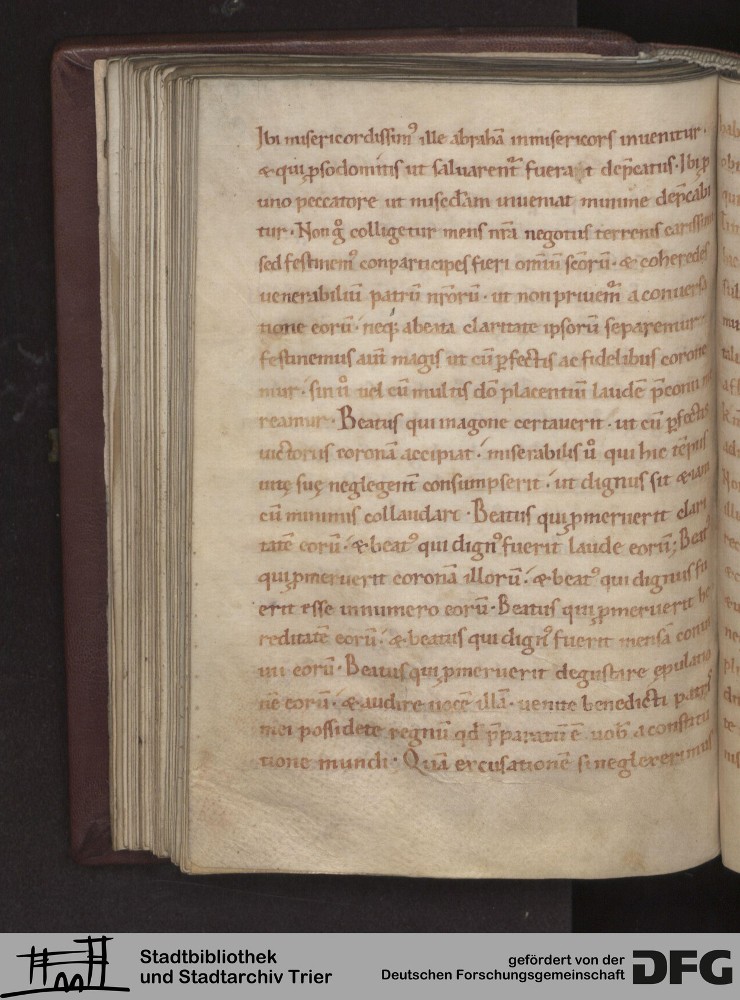 Ibi misericordissim⁹ ille abrahā inmisericors inuenitur.
& qui ꝓ sodomitis ut saluarent᷑ fuerat dep̄catus. Ibi ꝓ
uno peccatore ut misceam ueniat minime dep̄cabi
tur. Non g̊ colligetur mens nr̄a negotiis terrenis carissimi
sed festinem⁹ conparticipes fieri omniū sc̄orū. & coheredes
uenerabiliū patrū nr̄orū. ut non priuem᷑ a conuersa
tione eorū. neq; abeata claritate ipsorū separemur
festinemus aut̄ magis ut cū ꝑfectis ac fidelibus corone
mur. sin ů uel cū multis dō placentiū laudē p̄coniū m
reamur. Beatus qui in agone certauerit. ut cū ꝑfectis
uictoriis coronā accipiat. miserabilis ů qui hic tēpus
uitę suę neglegent̄ consumpserit. ut dignus sit & iam
cū minimis collaudari. Beatus qui ꝓmeruerit clari
tatē eorū. & beat⁹ qui dign⁹ fuerit laude eorū; Beat⁹
qui ꝓmeruerit coronā illorū. & beat⁹ qui dignus fu
erit esse in numero eorū. Beatus qui ꝓmeruerit he
reditatē eorū. & beatus qui dign⁹ fuerit mensā conui
uii eorū. Beatus qui ꝓmeruerit degustare epulatio
nē eorū. & audire uocē illā. uenite benedicti patris
mei possidete regnū qd̄ p̄paratū ē uob̄ a constitu
tione mundi. Quā excusationē si neglexerimus
Stadtbibliothek
und Stadtarchiv Trier
gefördert von der
Deutschen Forschungsgemeinschaft
DFG